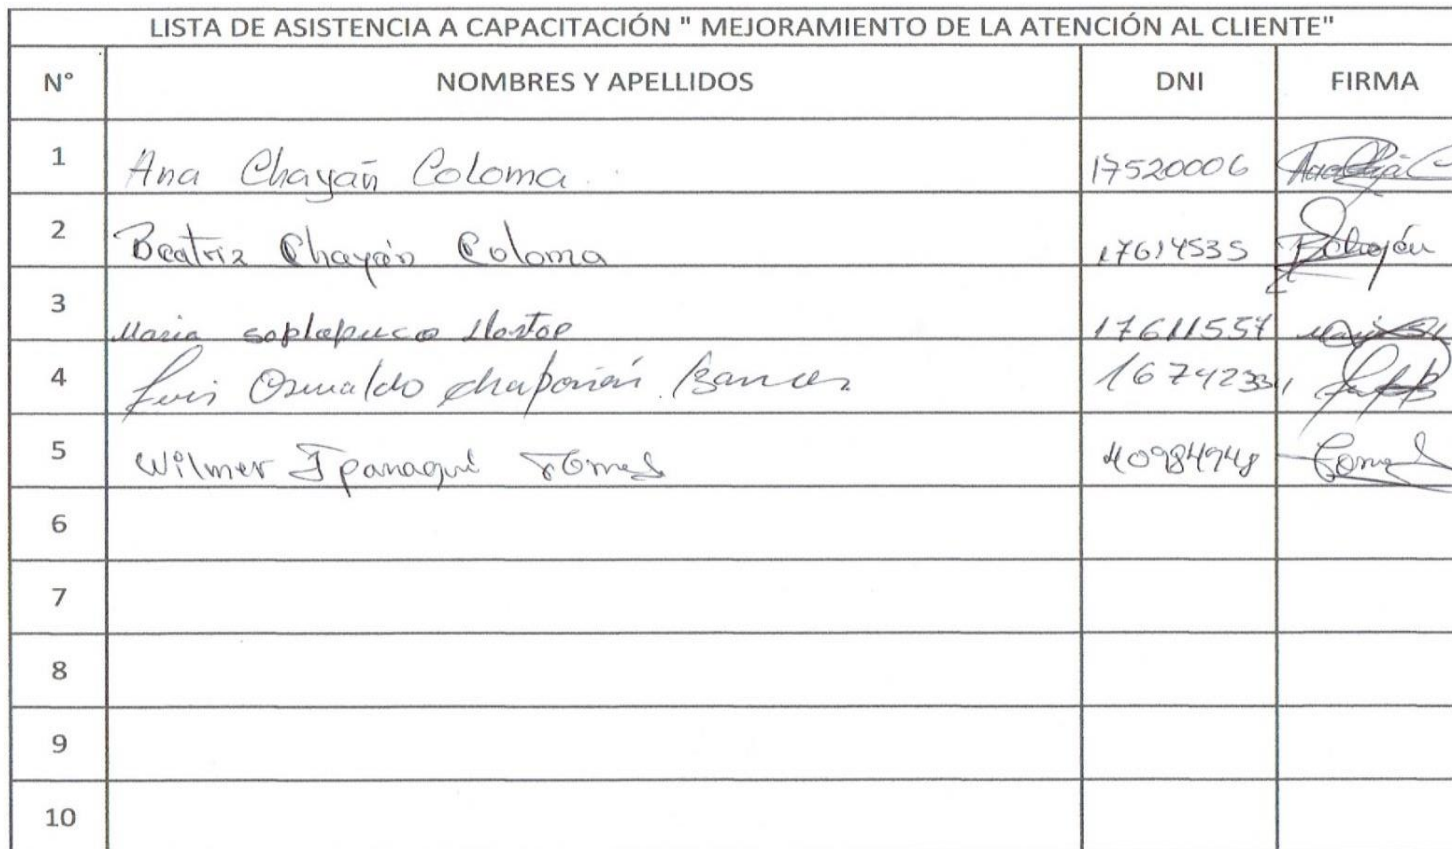 LISTA DE ASISTENCIA A CAPACITACIÓN " MEJORAMIENTO DE LA ATENCIÓN AL CLIENTE"
N° NOMBRES Y APELLIDOS DNI FIRMA
1 Ana Chayán Coloma 17520006
2 Beatriz Chayán Coloma 17614535
3 Maria soplapuco 17611557
4 Luis Oswaldo chapoñán
5 Wilmer Ipanaqué 40984948
6
7
8
9
10